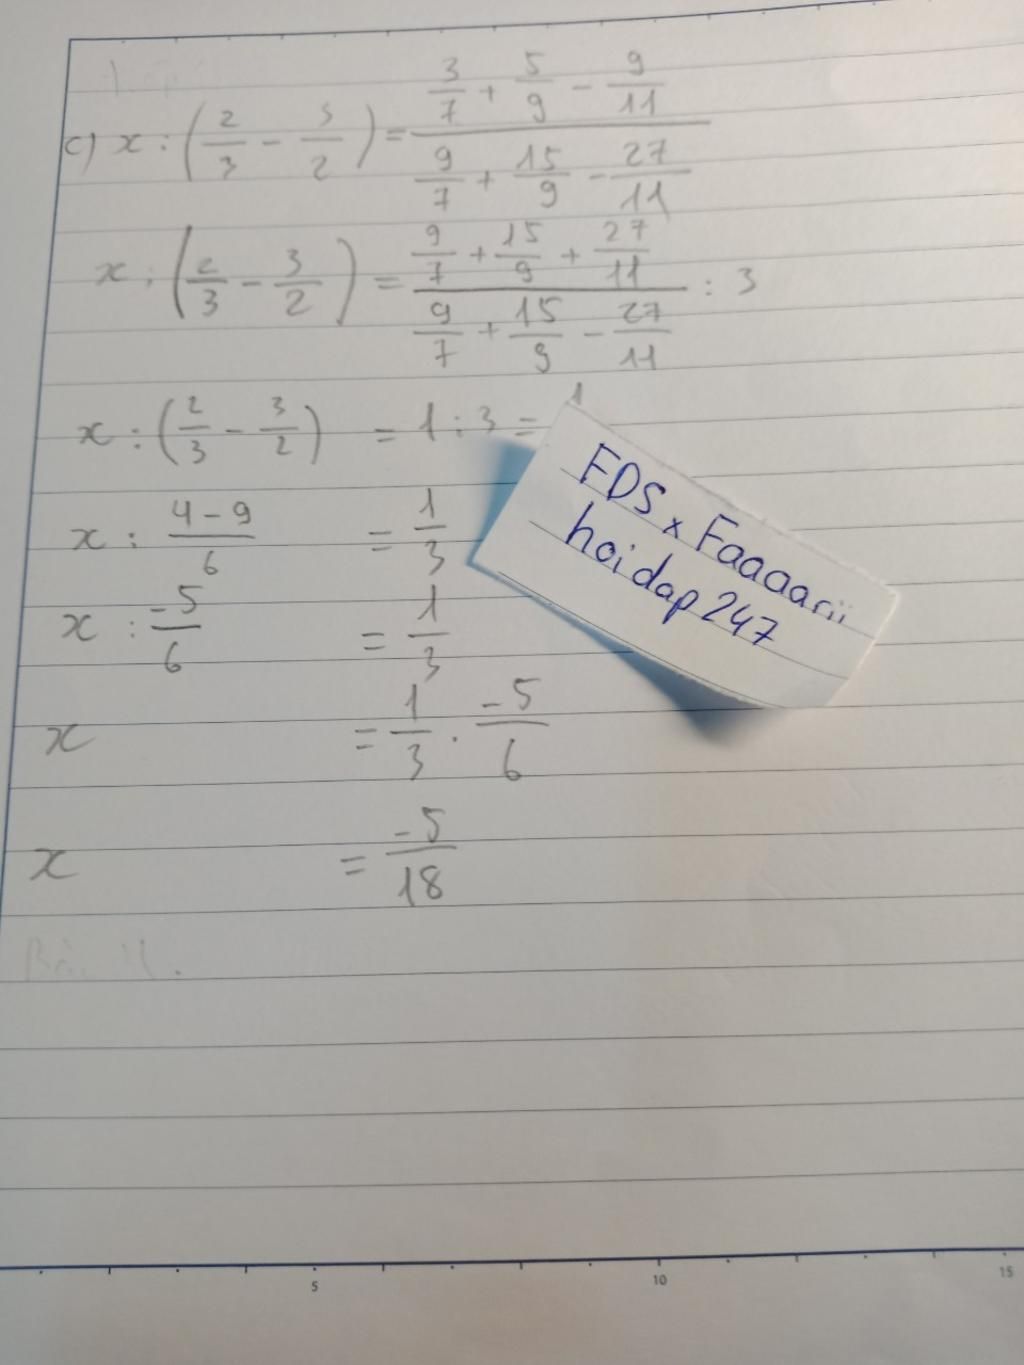 c) x : (2/3 - 3/2) = (3/7 + 5/9 - 9/11)/(9/7 + 15/9 - 27/11)
x : (2/3 - 3/2) = (9/7 + 15/9 + 27/11)/(9/7 + 15/9 - 27/11) : 3
x : (2/3 - 3/2) = 1 : 3 = 1
x : (4-9)/6 = 1/3
x : -5/6 = 1/3
x = 1/3 . -5/6
x = -5/18
FDS x Faaaarii
hoidap247
5 10 15